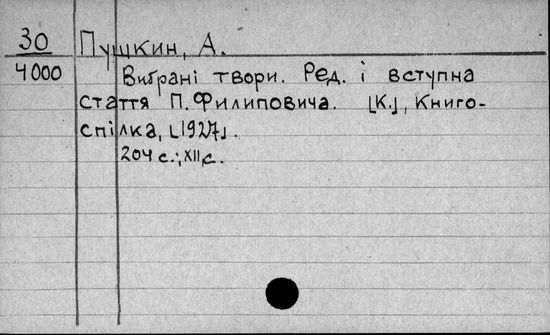 30 Пушкин, А.
4000 Вибрані твори. Ред. і вступна
стаття П. Филиповича. [К.], Книго-
спілка, [1927].
204 с.; XII с.